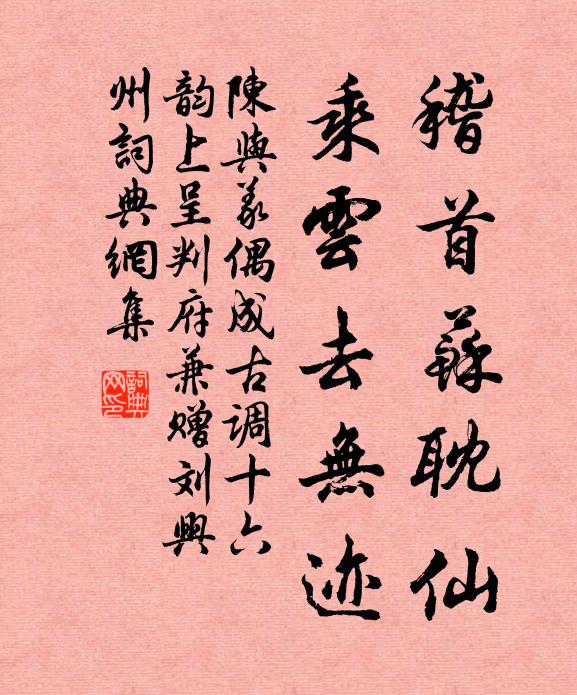 稽首蘇耽仙
乘雲去無迹
陳與義偶成古調十六
韵上呈判府兼赠刘興
州詞典網集
詞典
网印